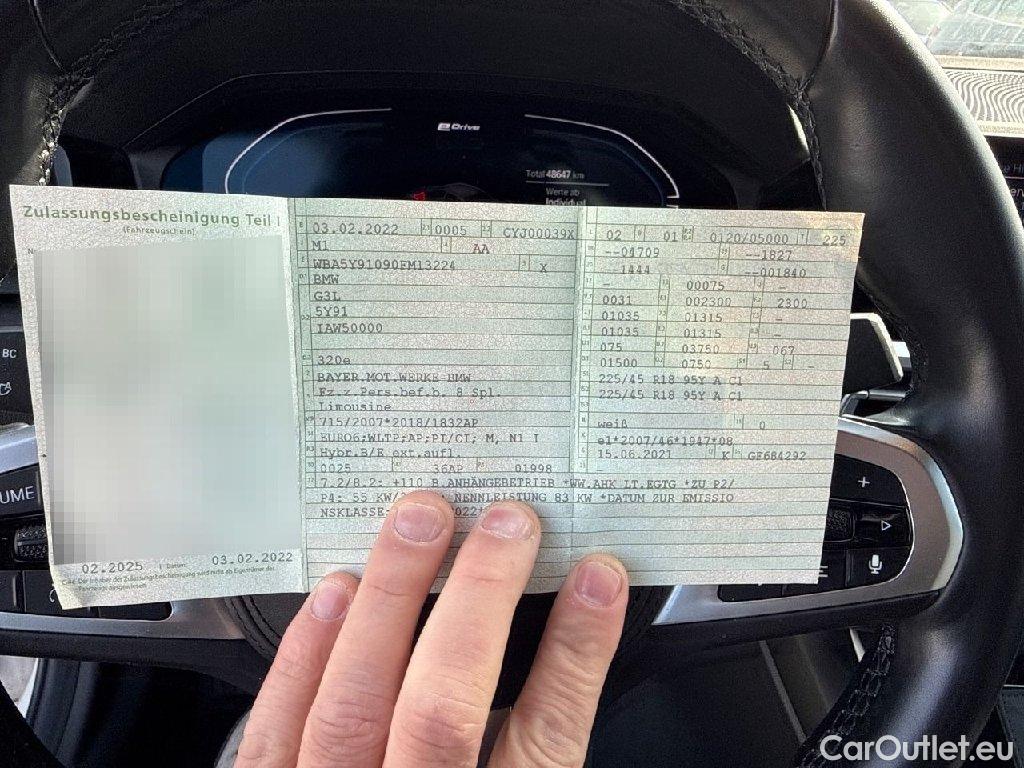 eDrive
Total 48647 km
Werte ab
Individual
Zulassungsbescheinigung Teil I
(Fahrzeugschein)
03.02.2022 0005 CYJ00039X
M1 AA
WBA5Y91090FM13224 X
BMW
G3L
5Y91
IAW50000
320e
BAYER.MOT.WERKE-BMW
Fz.z.Pers.bef.b. 8 Spl.
Limousine
715/2007*2018/1832AP
EURO6;WLTP;AP;PI/CI; M, N1 I
Hybr.B/E ext.aufl.
0025 36AP 01998
7.2/8.2: +110 B.ANHÄNGEBETRIEB *WW.AHK LT.EGTG *ZU P2/
P4: 55 KW/ NENNLEISTUNG 83 KW *DATUM ZUR EMISSIO
NSKLASSE:
02 01 0120/05000 225
--04709 --1827
--1444 --001840
- 00075 -
0031 002300 2300
01035 01315 -
01035 01315 -
075 03750 067
01500 0750 5 -
225/45 R18 95Y A C1
225/45 R18 95Y A C1
weiß 0
e1*2007/46*1947*08
15.06.2021 K GF684292
02.2025 Datum: 03.02.2022
C4c Der Inhaber der Zulassungsbescheinigung wird nicht als Eigentümer des
Fahrzeugs ausgewiesen.
BC
VOLUME
CarOutlet.eu